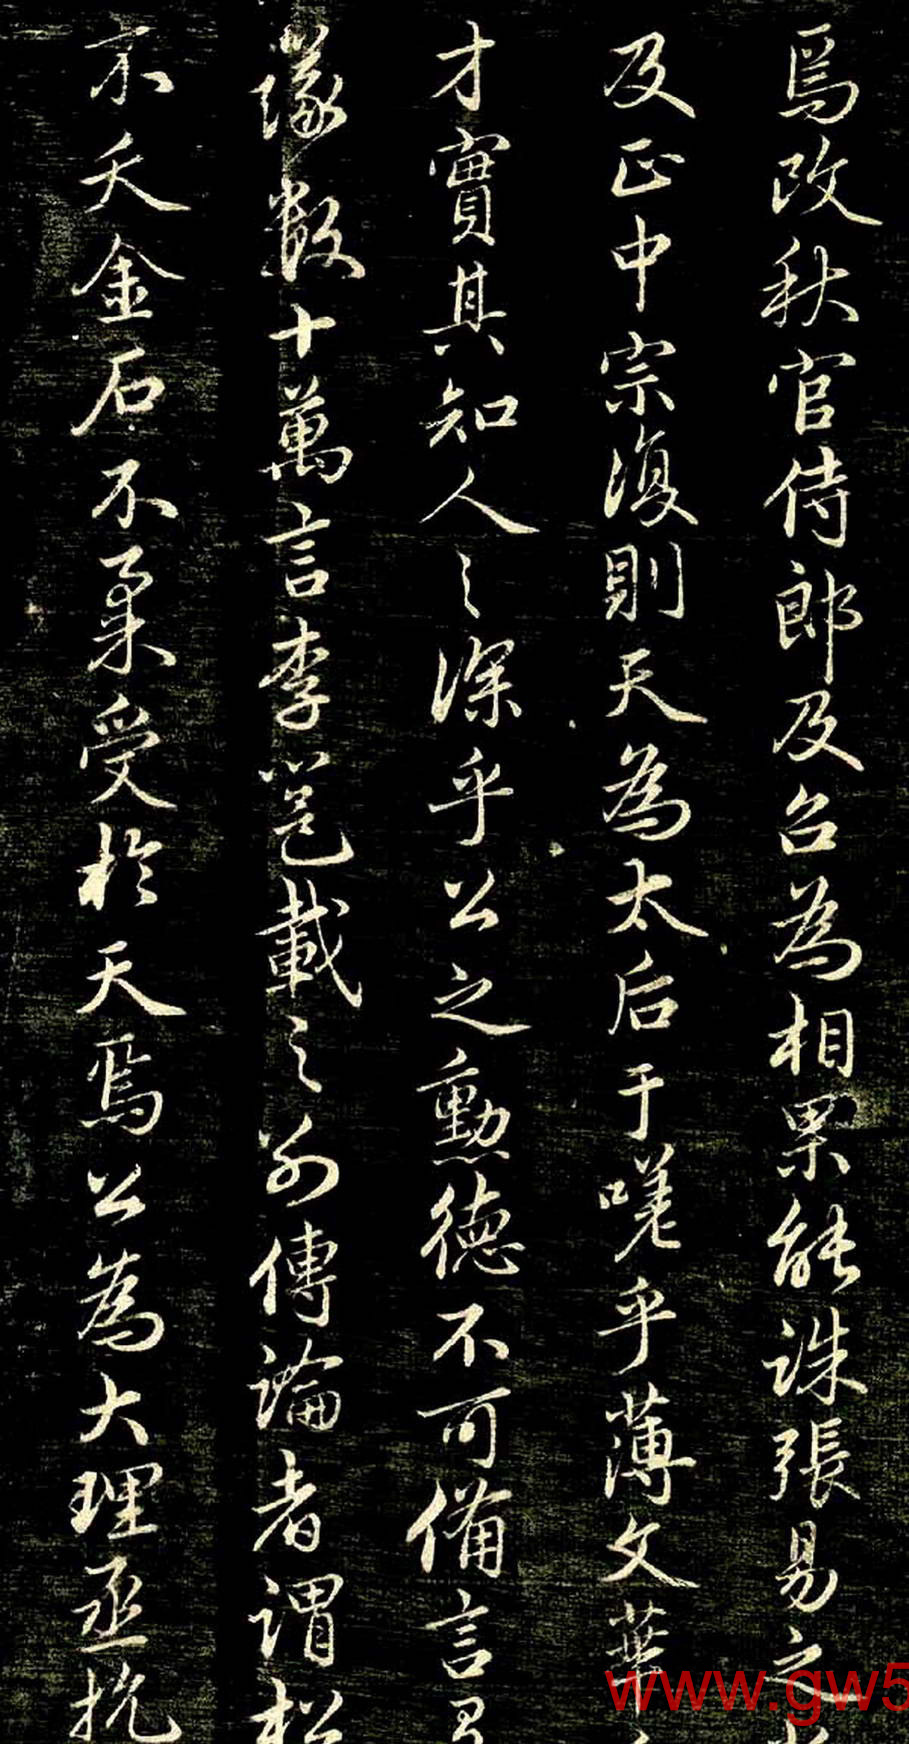 焉改秋官侍郎及召為相果能誅張易之
及正中宗復則天為太后于嘻乎薄文華
才實其知人之深乎公之勳德不可備言
議數十萬言李邕載之別傳論者謂松
不夭金石不柔受於天焉公為大理丞抗
www.gw5